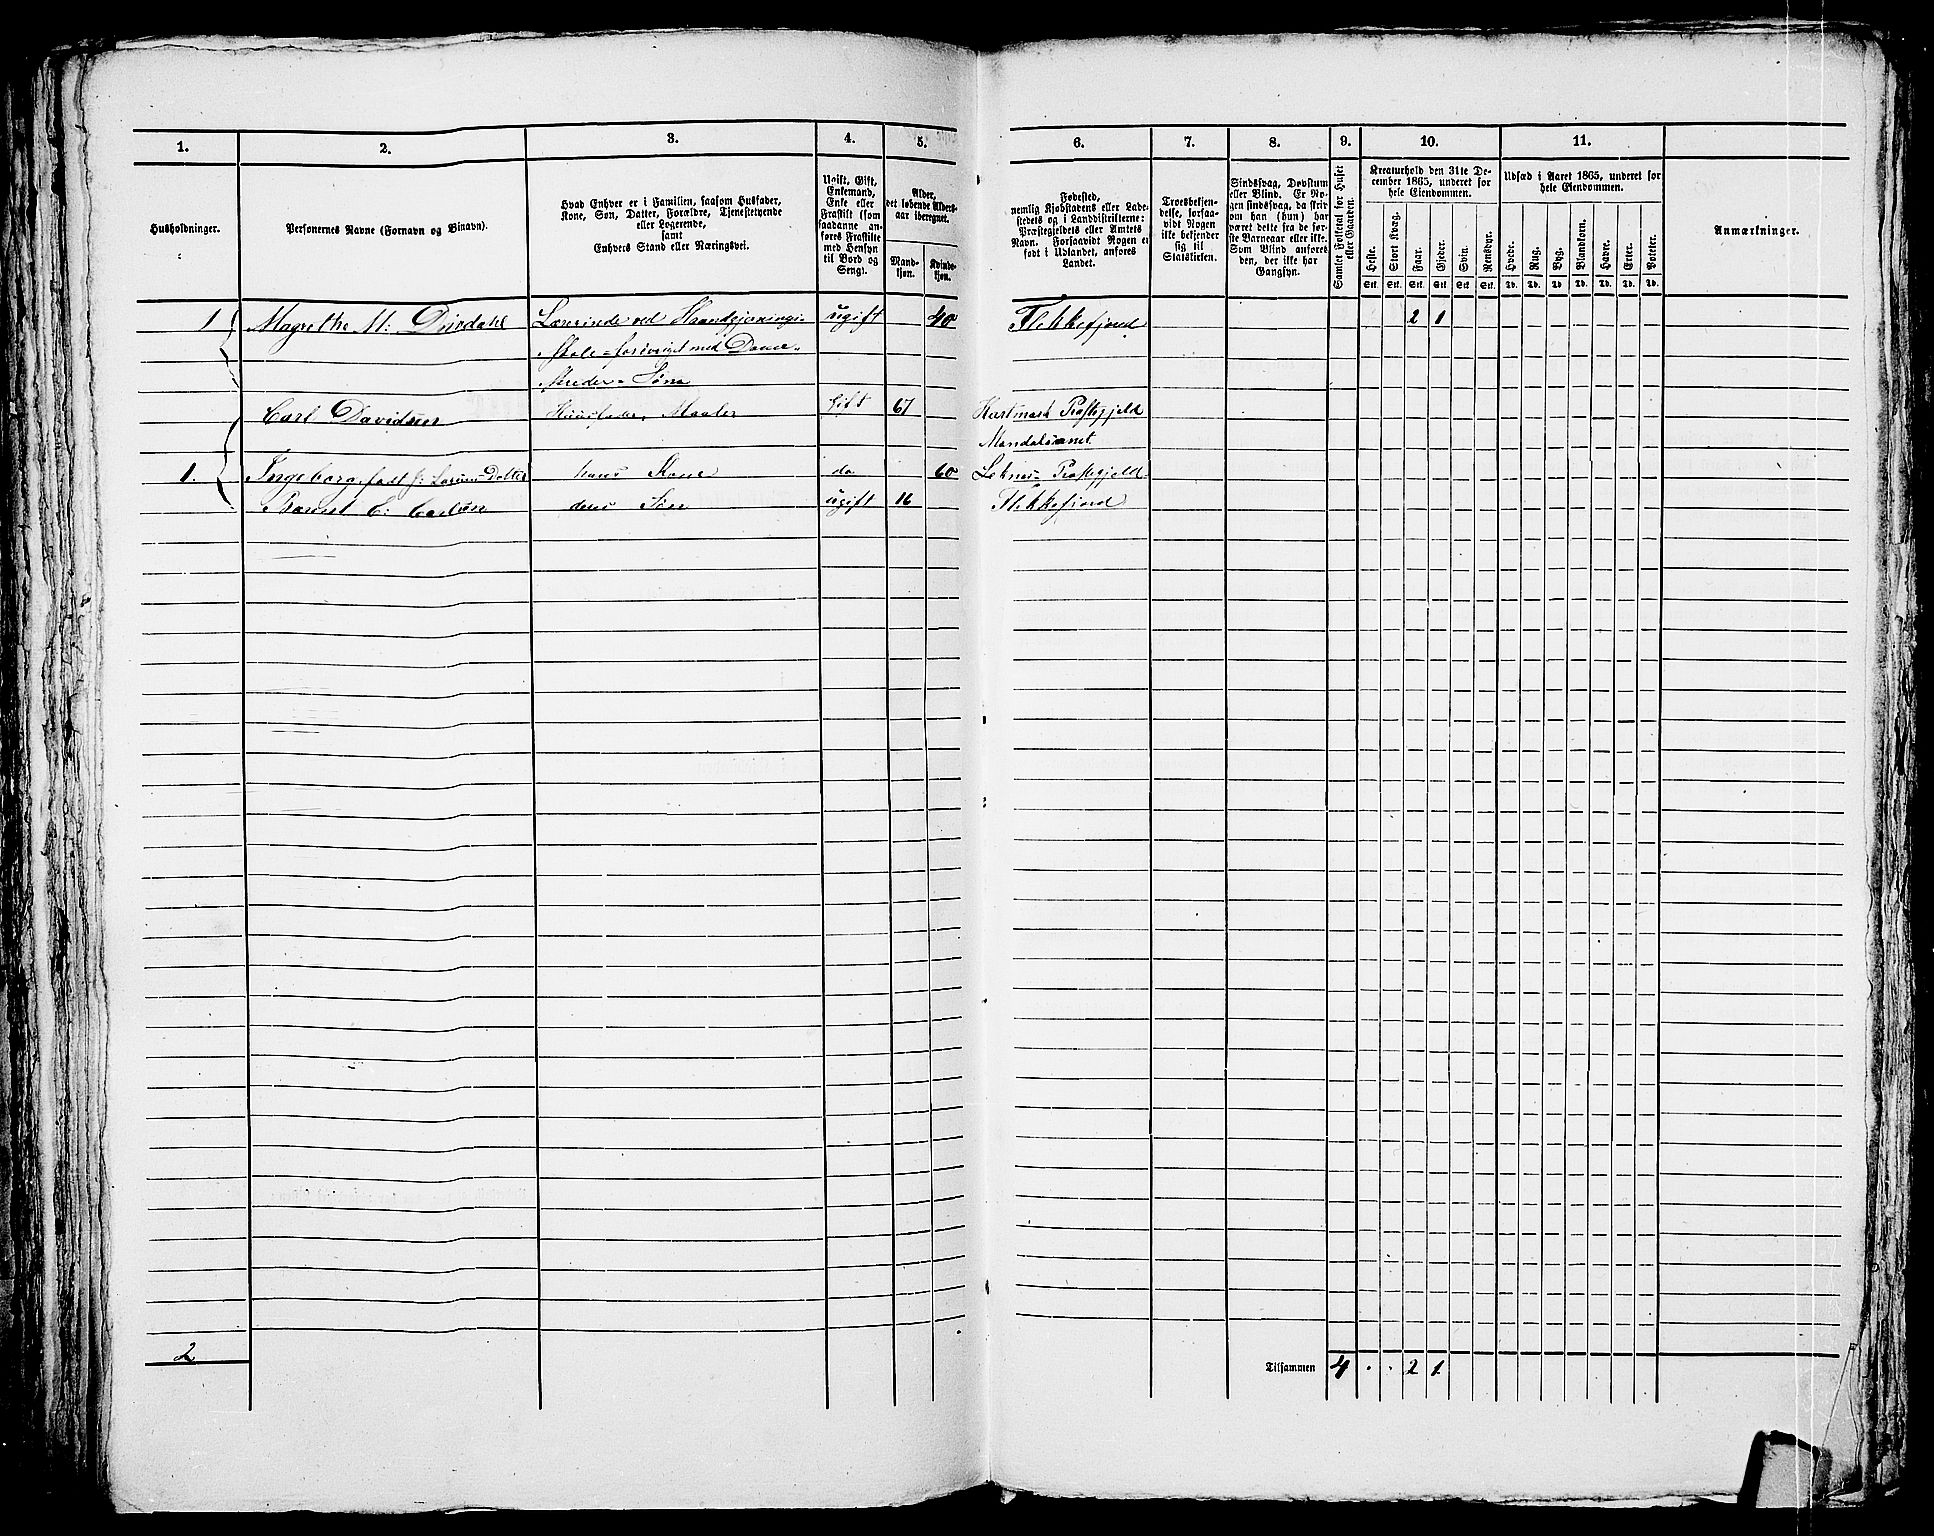 1. 2. 3. 4. 5. 6. 7. 8. 9. 10. 11.
Husholdninger.
Personernes Navne (Fornavn og Binavn).
Hvad Enhver er i Familien, saasom Husfader,
Kone, Søn, Datter, Forældre, Tjenestetyende
eller Logerende,
samt
Enhvers Stand eller Næringsvei.
Ugift, Gift,
Enkemand,
Enke eller
Fraskilt (som
saadanne an-
føres Fraskilte
med Hensyn
til Bord og
Seng).
Alder,
det løbende Alders-
aar iberegnet.
Mand-
kjøn.
Kvinde-
kjøn.
Fødested,
nemlig Kjøbstadens eller Lade-
stedets og i Landdistrikterne:
Præstegjeldets eller Amtets
Navn. Forsaavidt Nogen er
født i Udlandet, anføres
Landet.
Troesbekjen-
delse, forsaa-
vidt Nogen
ikke bekjender
sig til
Statskirken.
Sindssvag, Døvstum
eller Blind. Er No-
gen sindssvag, da skriv
om han (hun) har
været dette fra de før-
ste Barneaar eller ikke.
Som Blind anføres
den, der ikke har
Gangsyn.
Samlet Folketal for Huset
eller Gaarden.
Kreaturhold den 31te De-
cember 1865, underet for
hele Eiendommen.
Heste. Stort Kvæg. Faar. Gjeder. Svin. Rensdyr.
Stk. Stk. Stk. Stk. Stk. Stk.
Udsæd i Aaret 1865, underet for
hele Eiendommen.
Hvede. Rug. Byg. Blandkorn. Havre. Erter. Poteter.
Td. Td. Td. Td. Td. Td. Td.
Anmærkninger.
1 Magrethe M: Duedahl Lærerinde ved Haandgjernings- ugift 40 Flekkefjord 2 1
Skole forsørget med Dame-
skreder
Carl Davidsen Huusfader, Maaler Gift 67 Præstegjeld
Mandals amt.
1. Ingeborg, født hans Kone do 60 Præstegjeld
C: Carlsen deres Søn ugift 16 Flekkefjord
2 Tilsammen 4 . . 2 1